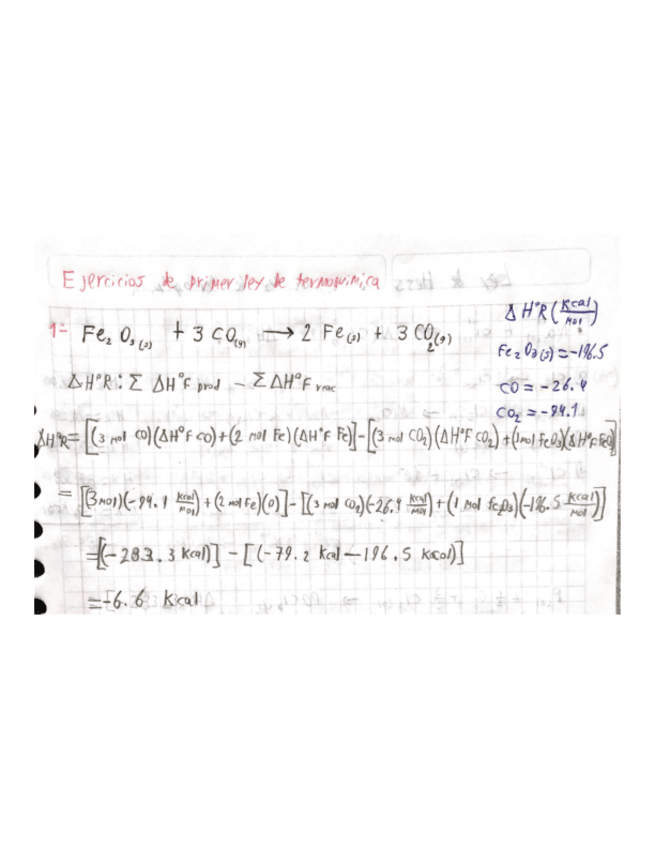 Ejercicios de primer ley de termoquimica
ΔH°R (Kcal/mol)
1- Fe₂O₃(s) + 3 CO(g) → 2 Fe(s) + 3 CO₂(g)
Fe₂O₃(s) = -196.5
ΔH°R : Σ ΔH°F prod - Σ ΔH°F reac
CO = -26.4
CO₂ = -94.1
ΔH°R = [(3 mol CO)(ΔH°F CO) + (2 mol Fe)(ΔH°F Fe)] - [(3 mol CO₂)(ΔH°F CO₂) + (1mol Fe₂O₃)(ΔH°F FeO)]
= [(3mol)(-94.1 Kcal/mol) + (2 mol Fe)(0)] - [(3 mol CO₂)(-26.4 Kcal/mol) + (1 mol Fe₂O₃)(-196.5 Kcal/mol)]
= [(-283.3 Kcal)] - [(-79.2 Kcal - 196.5 Kcal)]
= -6.6 Kcal